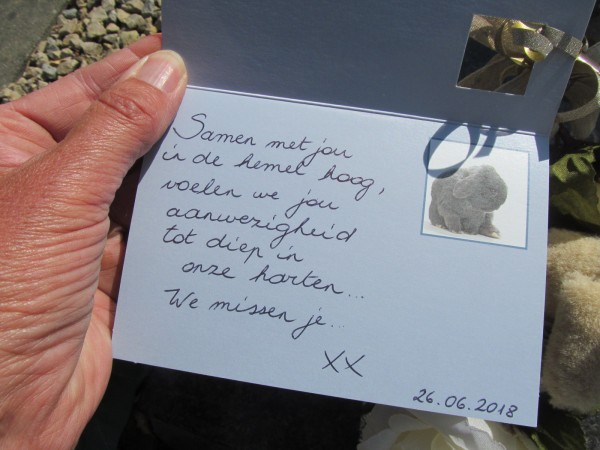 Samen met jou
in de hemel hoog,
voelen we jou
aanwezigheid
tot diep in
onze harten...
We missen je...
XX
26.06.2018